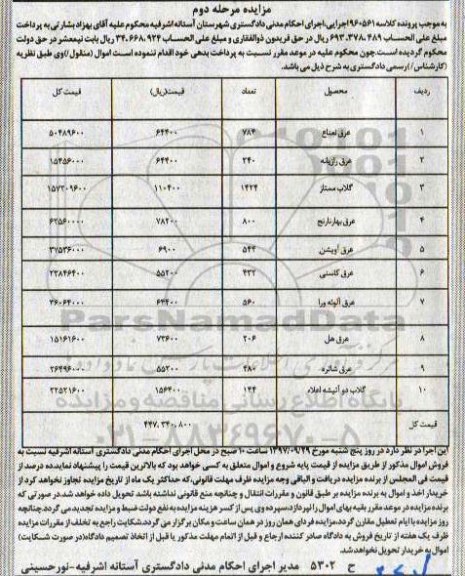 مزایده مرحله دوم
به موجب پرونده کلاسه ۹۶۰۵۶۱ اجرایی، اجرای احکام مدنی دادگستری شهرستان آستانه اشرفیه محکوم علیه آقای بهزاد بشارتی به پرداخت
مبلغ علی الحساب ۶۹۳.۳۷۸.۴۸۹ ریال در حق فریدون ذوالفقاری و مبلغ علی الحساب ۳۴.۶۶۸.۹۲۴ ریال بابت نیمعشر در حق دولت
محکوم گردیده است.چون محکوم علیه در موعد مقرر نسبت به پرداخت بدهی خود اقدام ننموده است اموال (منقول/)وی طبق نظریه
(کارشناس/)رسمی دادگستری به شرح ذیل می باشد.
ردیف محصول تعداد قیمت(ریال) قیمت کل
۱ عرق نعناع ۷۸۴ ۶۴۴۰۰ ۵۰۴۸۹۶۰۰
۲ عرق رازیانه ۲۴۰ ۶۴۴۰۰ ۱۵۴۵۶۰۰۰
۳ گلاب ممتاز ۱۴۲۴ ۱۱۰۴۰۰ ۱۵۷۲۰۹۶۰۰
۴ عرق بهارنارنج ۸۰۰ ۷۸۲۰۰ ۶۲۵۶۰۰۰۰
۵ عرق آویشن ۵۴۴ ۶۹۰۰ ۳۷۵۳۶۰۰۰
۶ عرق کاسنی ۴۳۲ ۵۵۲۰۰ ۲۳۸۴۶۴۰۰
۷ عرق آلوئه ورا ۵۶۰ ۶۴۴۰۰ ۳۶۰۶۴۰۰۰
۸ عرق هل ۲۰۶ ۷۳۶۰۰ ۱۵۱۶۱۶۰۰
۹ عرق شاتره ۴۸۰ ۵۵۲۰۰ ۲۶۴۹۶۰۰۰
۱۰ گلاب دو آتیشه اعلاء ۱۴۴ ۱۵۶۴۰۰ ۲۲۵۲۱۶۰۰
قیمت کل ۴۴۷.۳۴۰.۸۰۰
این اجرا در نظر دارد در روز پنج شنبه مورخ ۱۳۹۷/۰۹/۲۹ ساعت ۱۰ صبح در محل اجرای احکام مدنی دادگستری آستانه اشرفیه نسبت به
فروش اموال مذکور از طریق مزایده از قیمت پایه شروع و اموال متعلق به کسی خواهد بود که بالاترین قیمت را پیشنهاد نماید.ده درصد از
قیمت فی المجلس از برنده مزایده دریافت و الباقی وجه مزایده ظرف مهلت قانونی،که حداکثر یک ماه از تاریخ مزایده تجاوز نخواهد کرد از
خریدار اخذ و اموال به برنده مزایده بر طبق قانون و مقررات انتقال و چنانچه منع قانونی نداشته باشد تحویل داده خواهد شد.در صورتی که
برنده مزایده در موعد مقرر بقیه بهای اموال را نپردازد،سپرده وی پس از کسر هزینه مزایده به نفع دولت ضبط و مزایده تجدید می گردد.چنانچه
روز مزایده با ایام تعطیل مقارن گردد،مزایده فردای همان روز در همان ساعت و مکان برگزار می گردد.شکایت راجع به تخلف از مقررات مزایده
ظرف یک هفته از تاریخ فروش به دادگاه صادر کننده ارجاع و قبل از اتمام مهلت مذکور یا قبل از اتخاذ تصمیم دادگاه(در صورت شکایت)
اموال به خریدار تحویل نخواهد شد.
ح ۵۳۰۲ مدیر اجرای احکام مدنی دادگستری آستانه اشرفیه-نورحسینی
ParsNamadData
پایگاه اطلاع رسانی مناقصه و مزایده
۰۲۱-۸۸۳۴۹۶۷۰-۵